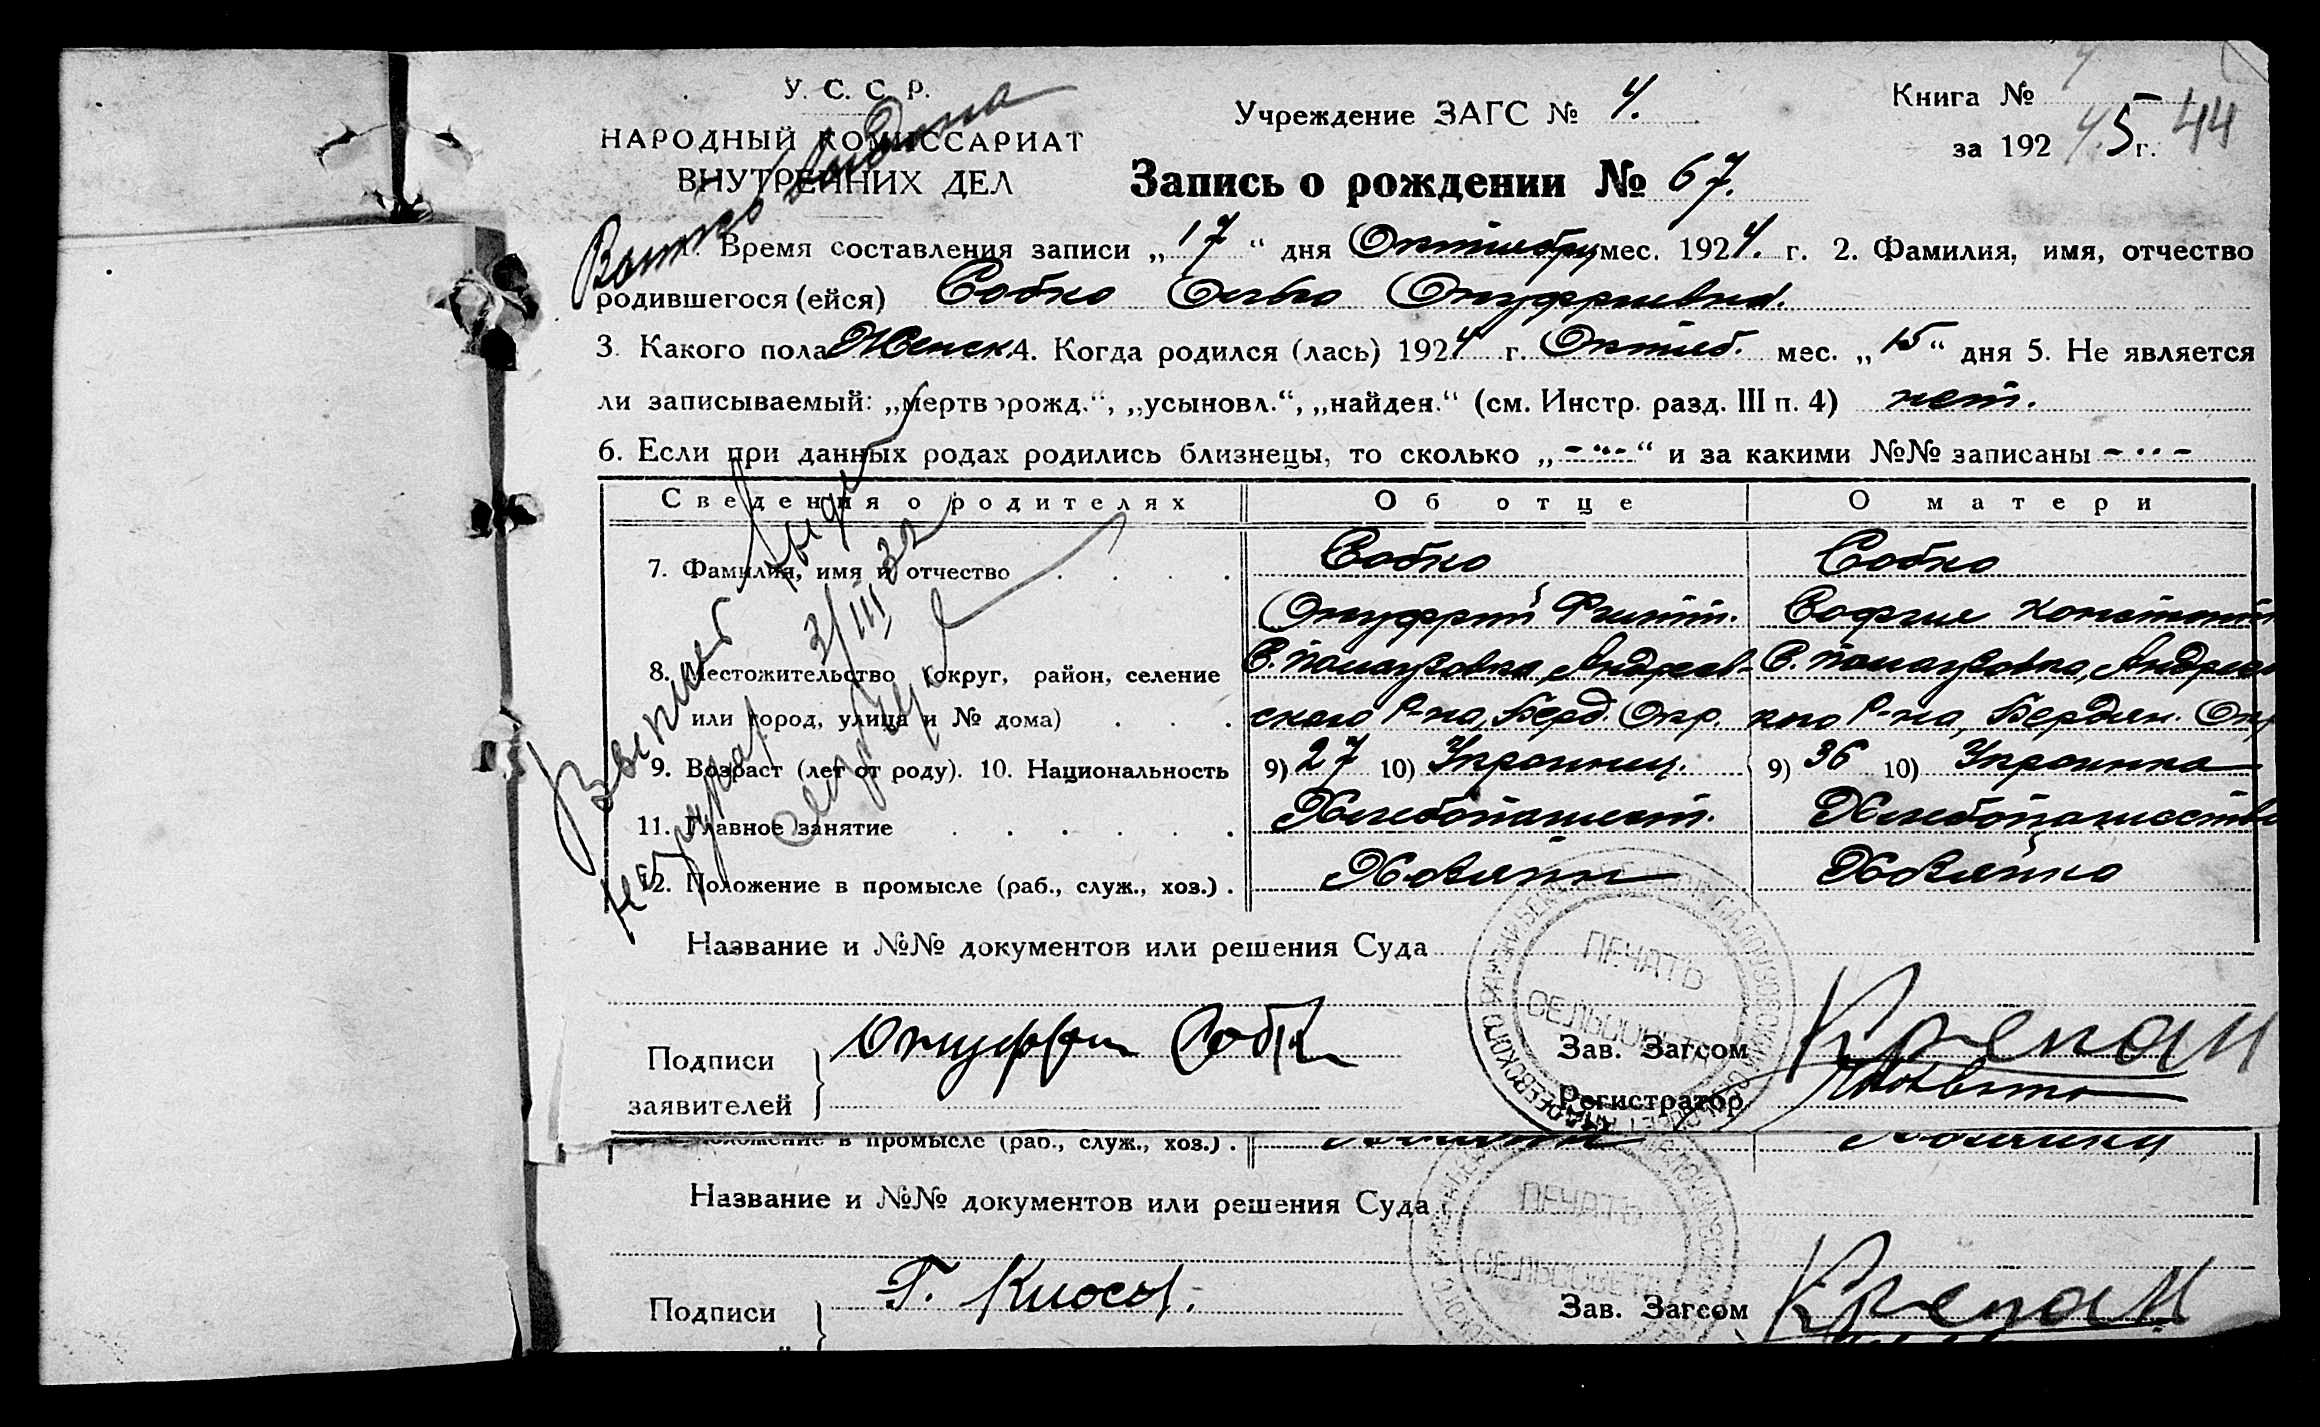 У. С. С. Р.
НАРОДНЫЙ КОМИССАРИАТ
ВНУТРЕННИХ ДЕЛ
Учреждение ЗАГС № 4.
Книга №
за 192 5 г. 44
Запись о рождении № 67.
1. Время составления записи „17“ дня Октября мес. 1924. г. 2. Фамилия, имя, отчество
родившегося (ейся) Собко Онуфриевна.
3. Какого пола Женск. 4. Когда родился (лась) 1924 г. Октяб. мес. „15“ дня 5. Не является
ли записываемый: „мертворожд.“, „усыновл.“, „найден.“ (см. Инстр. разд. III п. 4) нет.
6. Если при данных родах родились близнецы, то сколько „-“-“ и за какими №№ записаны - “ -
Сведения о родителях Об отце О матери
7. Фамилия, имя и отчество Собко Собко
Онуфрий Филип. София Констант
8. Местожительство (округ, район, селение С. Палаузовка, Андреев- С. Палаузовка, Андреев
или город, улица и № дома) ского Р-на, Берд. Окр. кого Р-на, Бердян. Окр
9. Возраст (лет от роду). 10. Национальность 9) 27 10) Украинец. 9) 36 10) Украинка
11. Главное занятие Хлебопашест. Хлебопашество
12. Положение в промысле (раб., служ., хоз.) . Хозяин Хозяйка
3/III 32
Название и №№ документов или решения Суда
ПЕЧАТЬ
СЕЛЬСОВЕТА
Подписи Онуфри Собко Зав. Загсом Крепак
заявителей Регистратор
Положение в промысле (раб., служ., хоз.) .
Название и №№ документов или решения Суда
ПЕЧАТЬ
СЕЛЬСОВЕТА
Подписи Г. Зав. Загсом Крепак